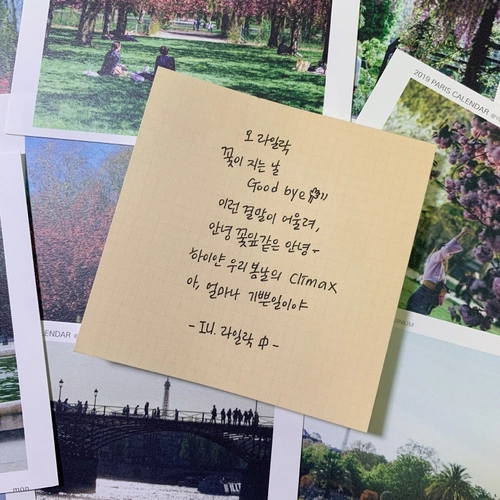 오 라일락
꽃이 지는 날
Good bye
이런 결말이 어울려,
안녕 꽃잎같은 안녕~
하이얀 우리 봄날의 Climax
아, 얼마나 기쁜일이야
- IU. 라일락 中 -
2019 PARIS CALENDAR
ENDAR
mon